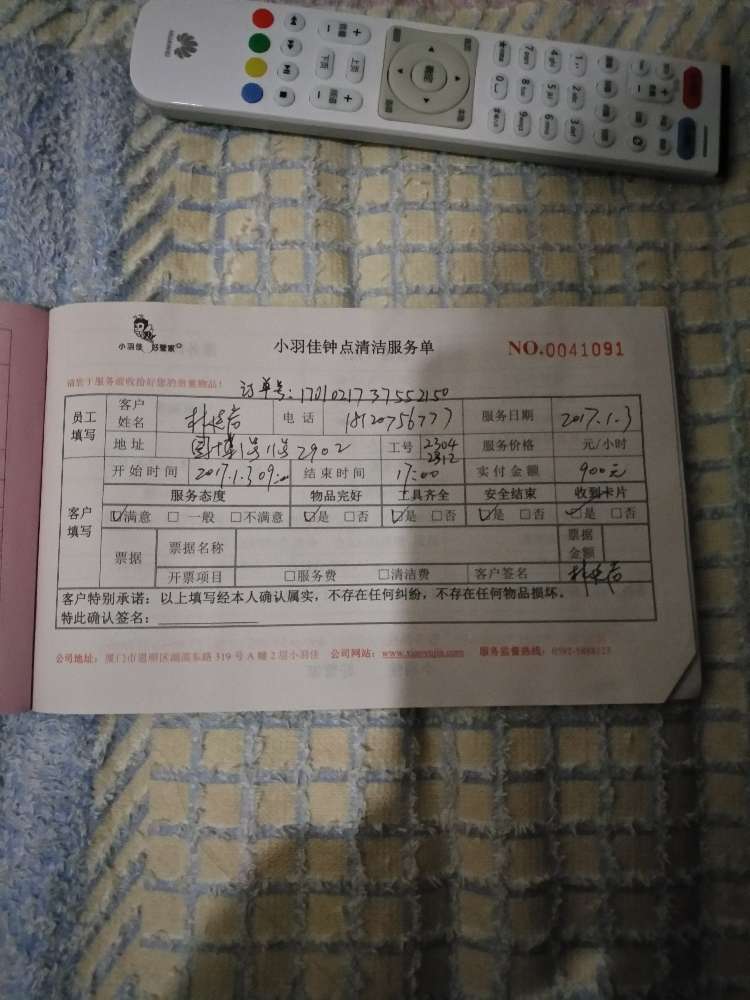 HUAWEI
小羽佳 好管家
小羽佳钟点清洁服务单
NO.0041091
请您于服务前收拾好您的贵重物品!
订单号:1701021737552150
员工填写
客户姓名 电话 18120756777 服务日期 2017.1.3
地址 2902 工号 2304 2312 服务价格 元/小时
客户填写
开始时间 2017.1.3 09:00 结束时间 17:00 实付金额 900元
服务态度 物品完好 工具齐全 安全结束 收到卡片
☑满意 □一般 □不满意 ☑是 □否 ☑是 □否 ☑是 □否 ☑是 □否
票据 票据名称 票据金额
开票项目 □服务费 □清洁费 客户签名
客户特别承诺:以上填写经本人确认属实,不存在任何纠纷,不存在任何物品损坏。
特此确认签名:
公司地址:厦门市思明区湖滨东路 319 号 A 幢 2 层小羽佳 公司网站:www.xiaoyujia.com 服务监督热线: